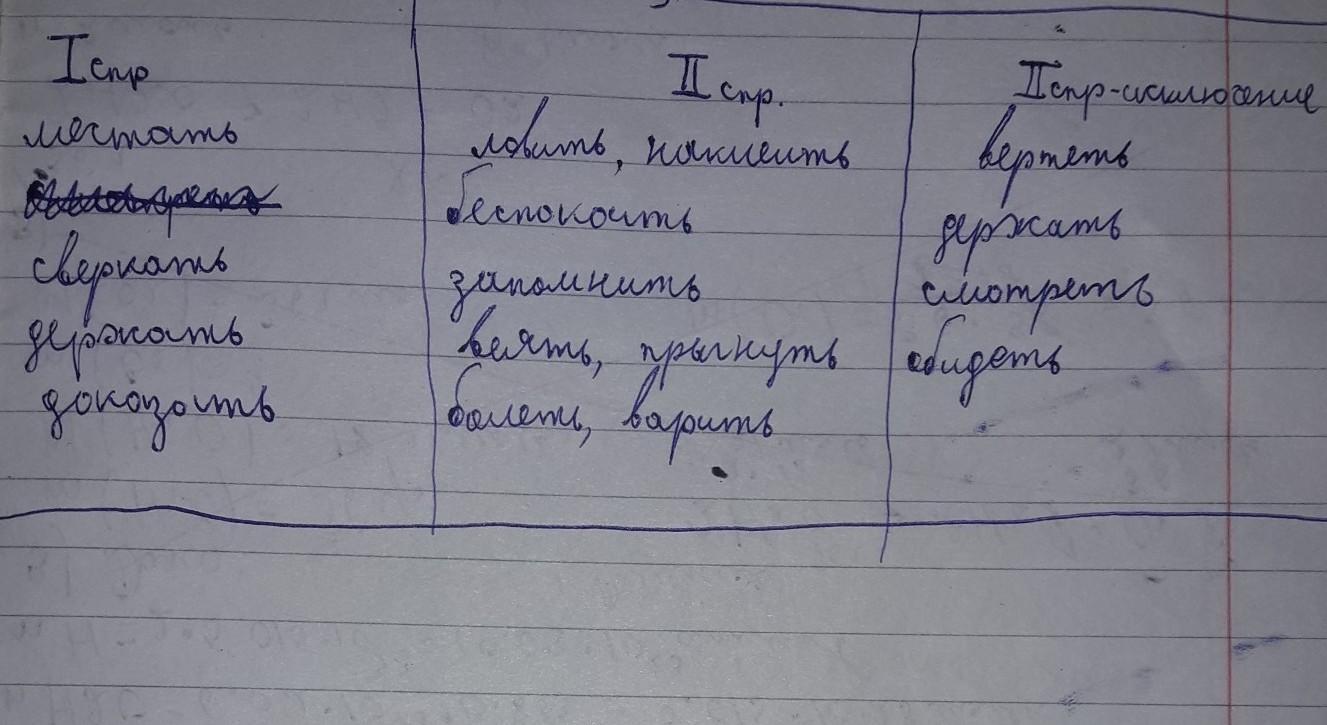 I спр
II спр.
II спр-исключение
мечтать
ловить, наклеить
вертеть
беспокоить
держать
сверкать
запомнить
смотреть
держать
веять, прыгнуть
обидеть
доказать
болеть, варить